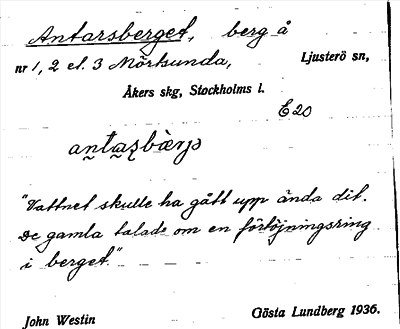 Antarsberget, berg å
nr 1, 2 el. 3 Mörtsunda, Ljusterö sn,
Åkers skg, Stockholms l.
E20
"Vattnet skulle ha gått upp ända dit.
De gamla talade om en förtöjningsring
i berget."
John Westin Gösta Lundberg 1936.